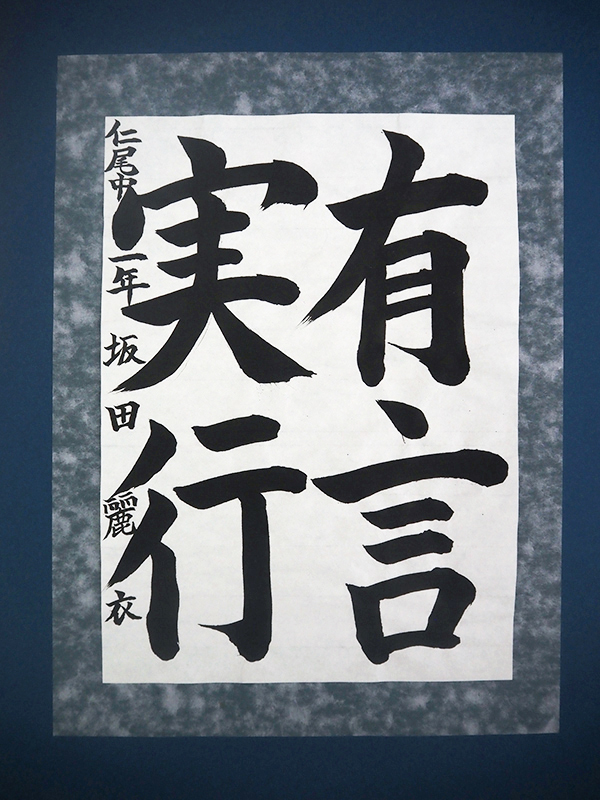 有言
実行
仁尾中一年坂田麗衣